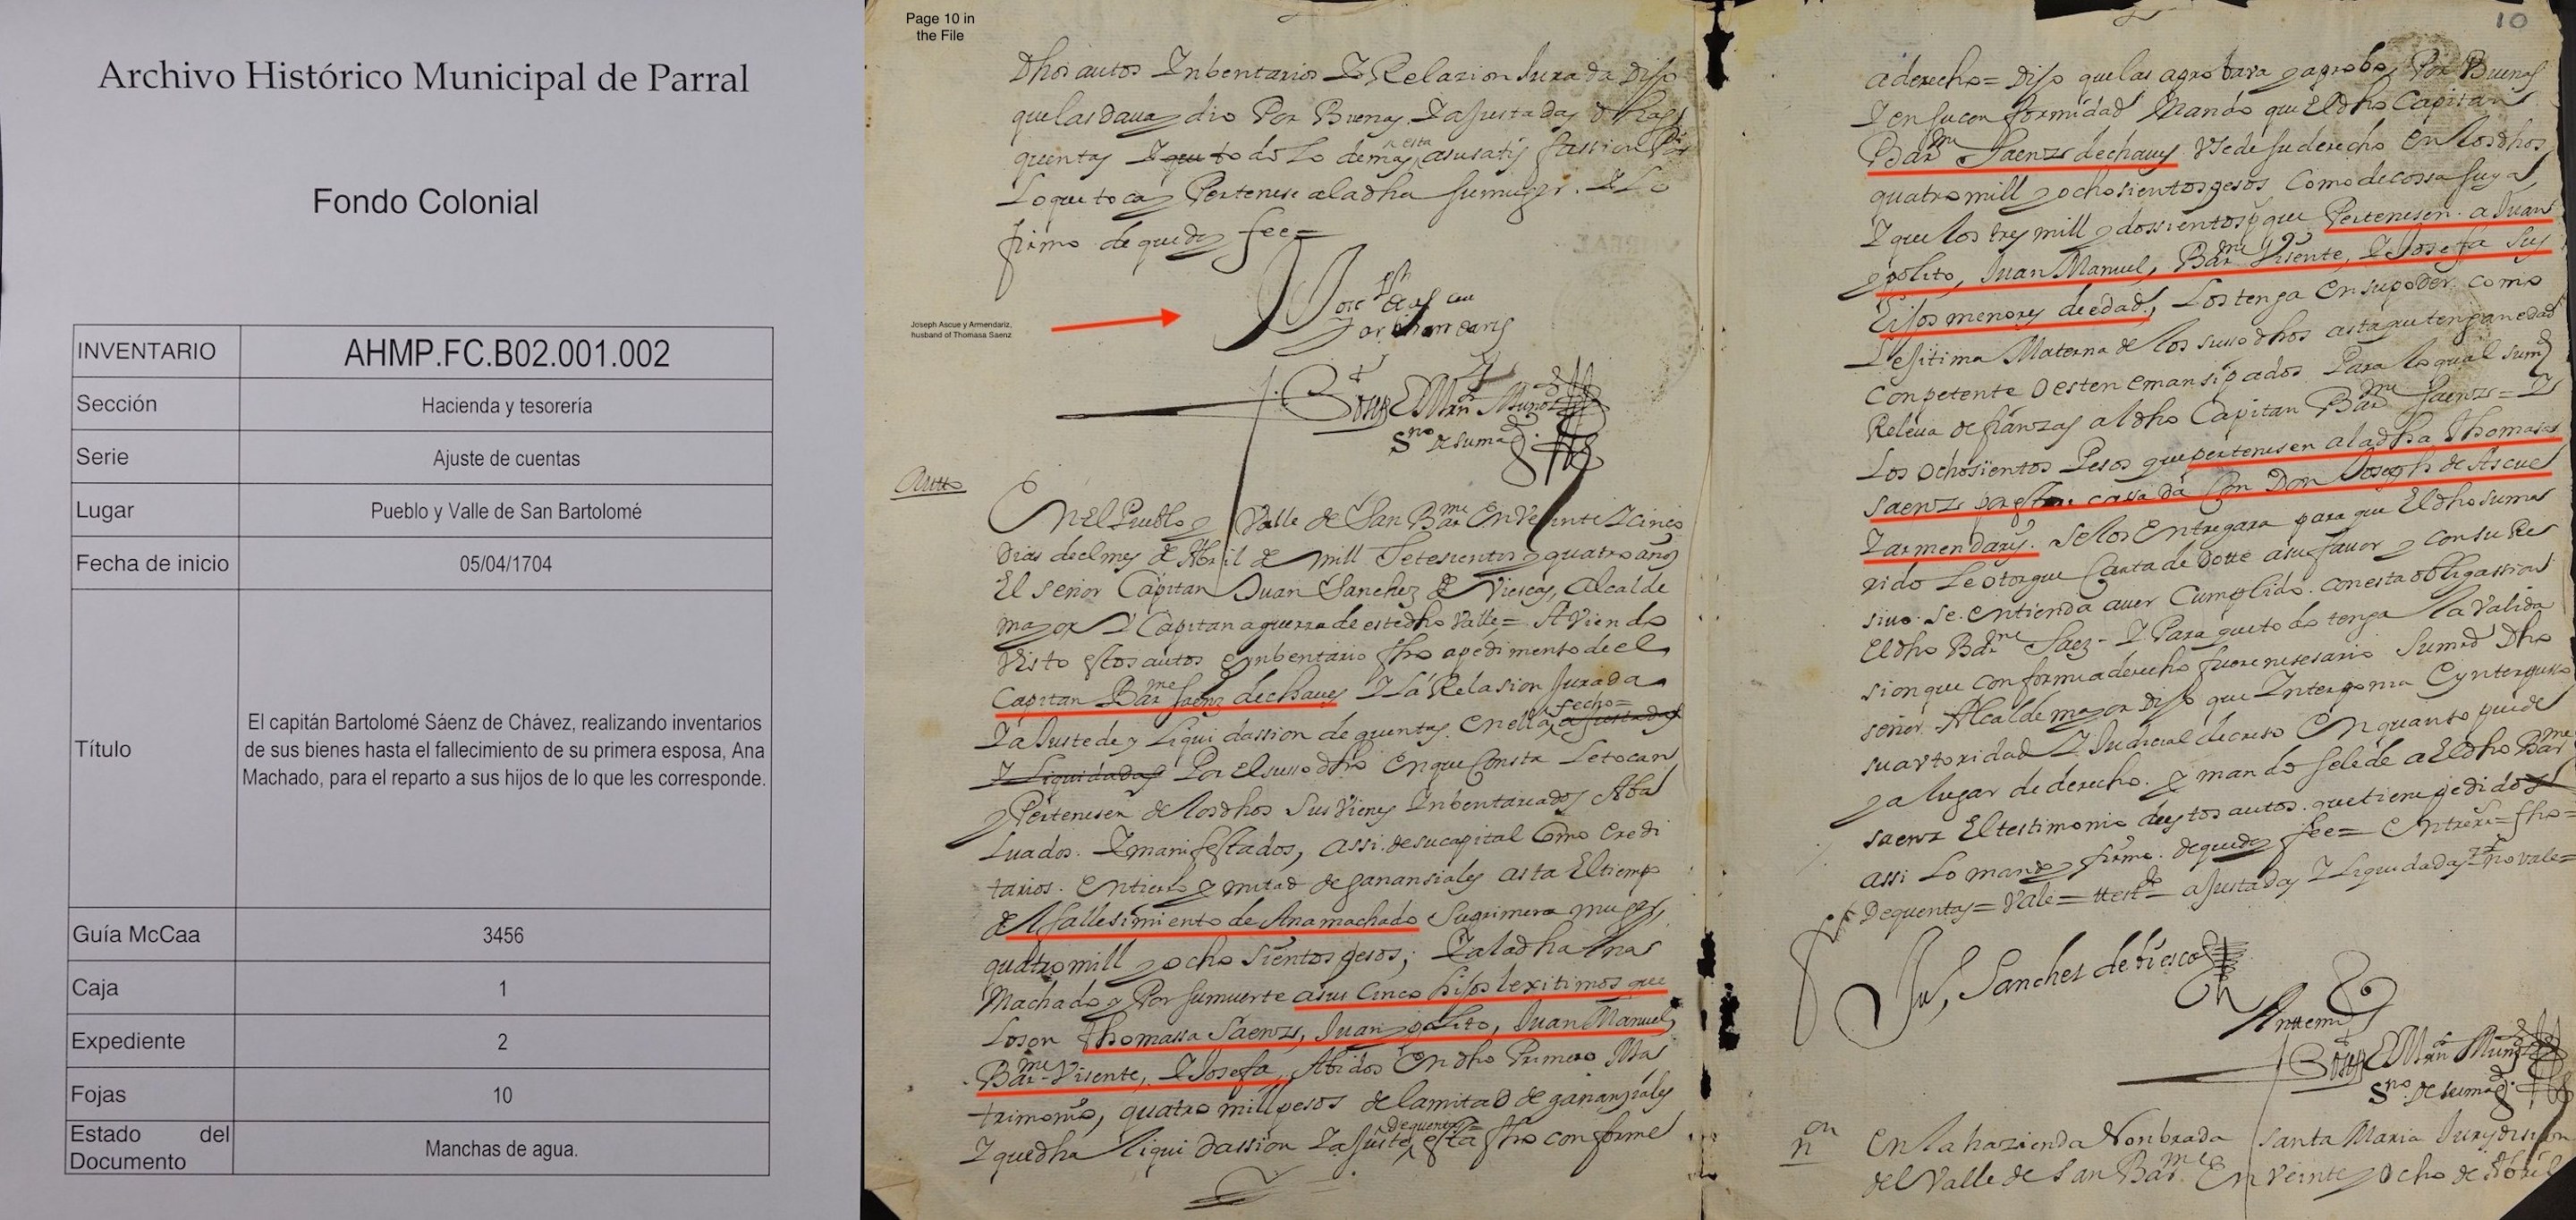 Archivo Histórico Municipal de Parral
Fondo Colonial
INVENTARIO AHMP.FC.B02.001.002
Sección Hacienda y tesorería
Serie Ajuste de cuentas
Lugar Pueblo y Valle de San Bartolomé
Fecha de inicio 05/04/1704
Título El capitán Bartolomé Sáenz de Chávez, realizando inventarios
de sus bienes hasta el fallecimiento de su primera esposa, Ana
Machado, para el reparto a sus hijos de lo que les corresponde.
Guía McCaa 3456
Caja 1
Expediente 2
Fojas 10
Estado del
Documento Manchas de agua.
Page 10 in
the File
Dhos autos Ynbentarios Y Relazion Jurada Dijo
que las dava y dio Por Buenas Y ajustadas dhas
quentas Y que todo Lo demas a susatisfassion Por
Lo que toca y Pertenese a la dha su muger. Y Lo
firmo de que doy fee =
Joseph Ascue y Armendariz,
husband of Thomasa Saenz
Auto
En El Pueblo y Valle de San Bar^me En Veinte Y cinco
Dias del mes de Abril de mill Setesientos y quatro años
El señor Capitan Juan Sanchez de Viescas, Alcalde
mayor Y Capitan a guerra de este dho Valle = Aviendo
Visto estos autos e ynbentario fho a pedimento de el
Capitan Bar^me saenz de chaves Y La Relasion Jurada
fecho =
Y a Juste de y Liquidassion de quentas. En ella ajustadas
Y Liquidadas Por El suso dho En que Consta Le tocan
y Pertenesen de los dhos Sus Vienes Ynbentariados Aba
Luados. Y manifestados, assi de su capital Como Credi
tarios. Entierro y mitad de ganansiales asta El tiempo
del fallesimiento de Ana machado Su primera muger,
quatro mill y ocho Sientos pesos; Y a la dha Ana
Machado y Por su muerte a sus Cinco hijos lexitimos que
Lo son Thomassa Saenz, Juan ypolito, Juan Manuel,
Bar^me Visente, Y Josefa, Abidos En dho Primero Ma
trimonio, quatro mill pesos de la mitad de gananziales
De quentas =
Y que dha Liquidassion Y ajuste, esta fho conforme
10
a derecho = Dijo que las aprobava y aprobo, Por Buenas
Y en su conformidad Mando que El dho Capitan
Bar^me Saenz de chaves Vse de su derecho En los dhos
quatro mill y ochosientos pesos Como de cossa suya,
Y que los tres mill y dossientos p^s que Pertenesen. a Juan
ypolito, Juan Manuel, Bar^me Visente, Y Josefa Sus
hijos menores de edad, Los tenga En su poder como
Lejitima Materna de los susodhos asta que tengan edad
Conpetente O esten emansipados Para lo qual su md
Releva de fianzas al dho Capitan Bar^me Saenz = Y
Los Ochosientos Pesos que pertenesen a la dha Thomasa
Saenz por estar cassada Con Don Joseph de Ascue
Y armendaris. Se los Entregara para que El dho suma
rido Le Otorgue Carta de Dotte a su favor y con su Re
sivo. Se entienda aver Cumplido. con esta obligassion
El dho Bar^me Saez - Y Para que todo tenga la Valida
sion que conforme a derecho fuere nesesario Su md Dho
señor Alcalde mayor Dijo que Interponia E ynterpuso
su avtoridad Y Judicial decreto En quanto puede
y a lugar de derecho. y mando se le de a El dho Bar^me
saenz El testimonio destos autos. que tiene pedido
assi Lo mando y firmo. de que doy fee = Entre Rs = fho =
De quentas = Vale = test^do ajustadas Y Liquidadas no vale =
Ju^o Sanchez de biescas
Antemi
S^no de su mag^d
n^on
En la hazienda Nonbrada Santa Maria Jurysdision
del Valle de San Bar^me En Veinte y Ocho de Abril